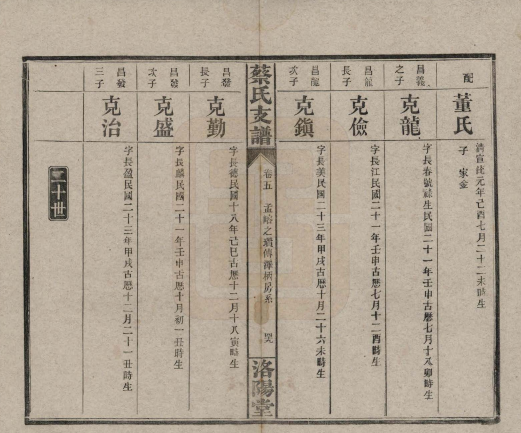 配
董氏
清宣統元年己酉七月二十二未時生
子 家金
昌義之子
克龍
字長春號祿生民國二十一年壬申古曆七月十八卯時生
昌龍長子
克儉
字長江民國二十一年壬申古曆七月十二酉時生
昌龍次子
克鎮
字長美民國二十三年甲戌古曆十月二十六未時生
蔡氏支譜
卷五
孟
之
傳
柄房系
洛陽堂
昌發長子
克勤
字長德民國十八年己巳古曆十二月十八寅時生
昌發次子
克盛
字長麟民國二十一年壬申古曆十月初一丑時生
昌發三子
克治
字長盈民國二十三年甲戌古曆十二月二十一丑時生
二十世